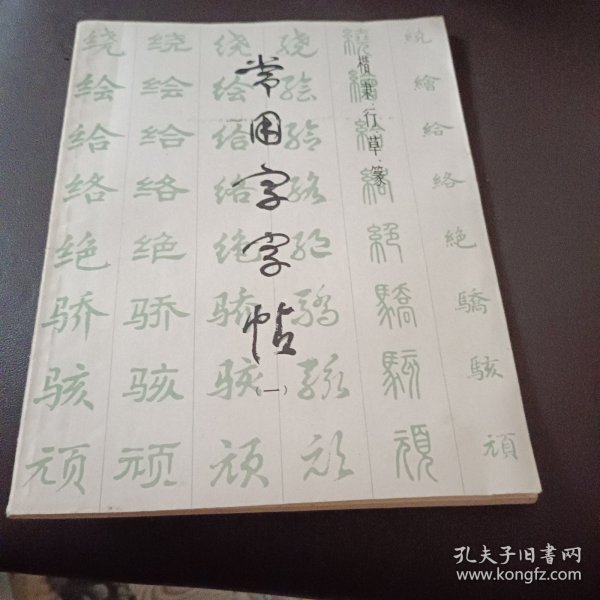 常用字字帖
(一)
楷隶行草·篆
绕 绕 绕 绕 繞 繞
绘 绘 绘 绘 繪 繪
给 给 给 给 給 給
络 络 络 络 絡 絡
绝 绝 绝 绝 絕 絶
骄 骄 骄 骄 驕 驕
骇 骇 骇 骇 駭 駭
顽 顽 顽 顽 頑 頑
孔夫子旧书网
www.kongfz.com